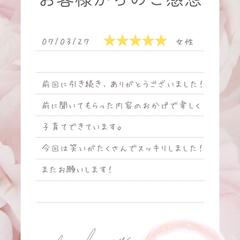 お客様からのご感想
07/03/27 ★★★★★ 女性
前回に引き続き、ありがとうございました!
前に聞いてもらった内容のおかげで楽しく
子育てできています。
今回は笑いがたくさんでスッキリしました!
またお願いします!